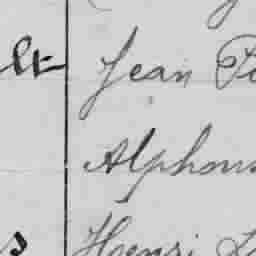 lt Jean
Alphons
s Henri